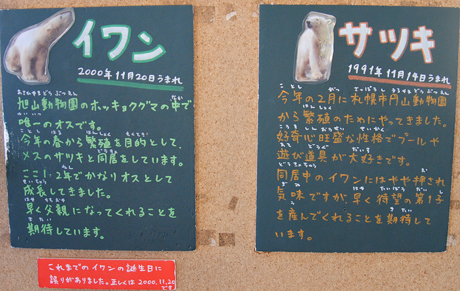 イワン
2000年11月20日うまれ
旭山動物園のホッキョクグマの中で
唯一のオスです。
今年の春から繁殖を目的として、
メスのサツキと同居をしています。
ここ1、2年でかなりオスとして
成長してきました。
早く父親になってくれることを
期待しています。
これまでのイワンの誕生日に
誤りがありました。正しくは2000.11.20
です
サツキ
1991年11月14日うまれ
今年の2月に札幌市円山動物園
から繁殖のためにやってきました。
好奇心旺盛な性格でプールや
遊び道具が大好きです。
同居中のイワンにはやや押され
気味ですが、早く待望の第1子
を産んでくれることを期待して
います。